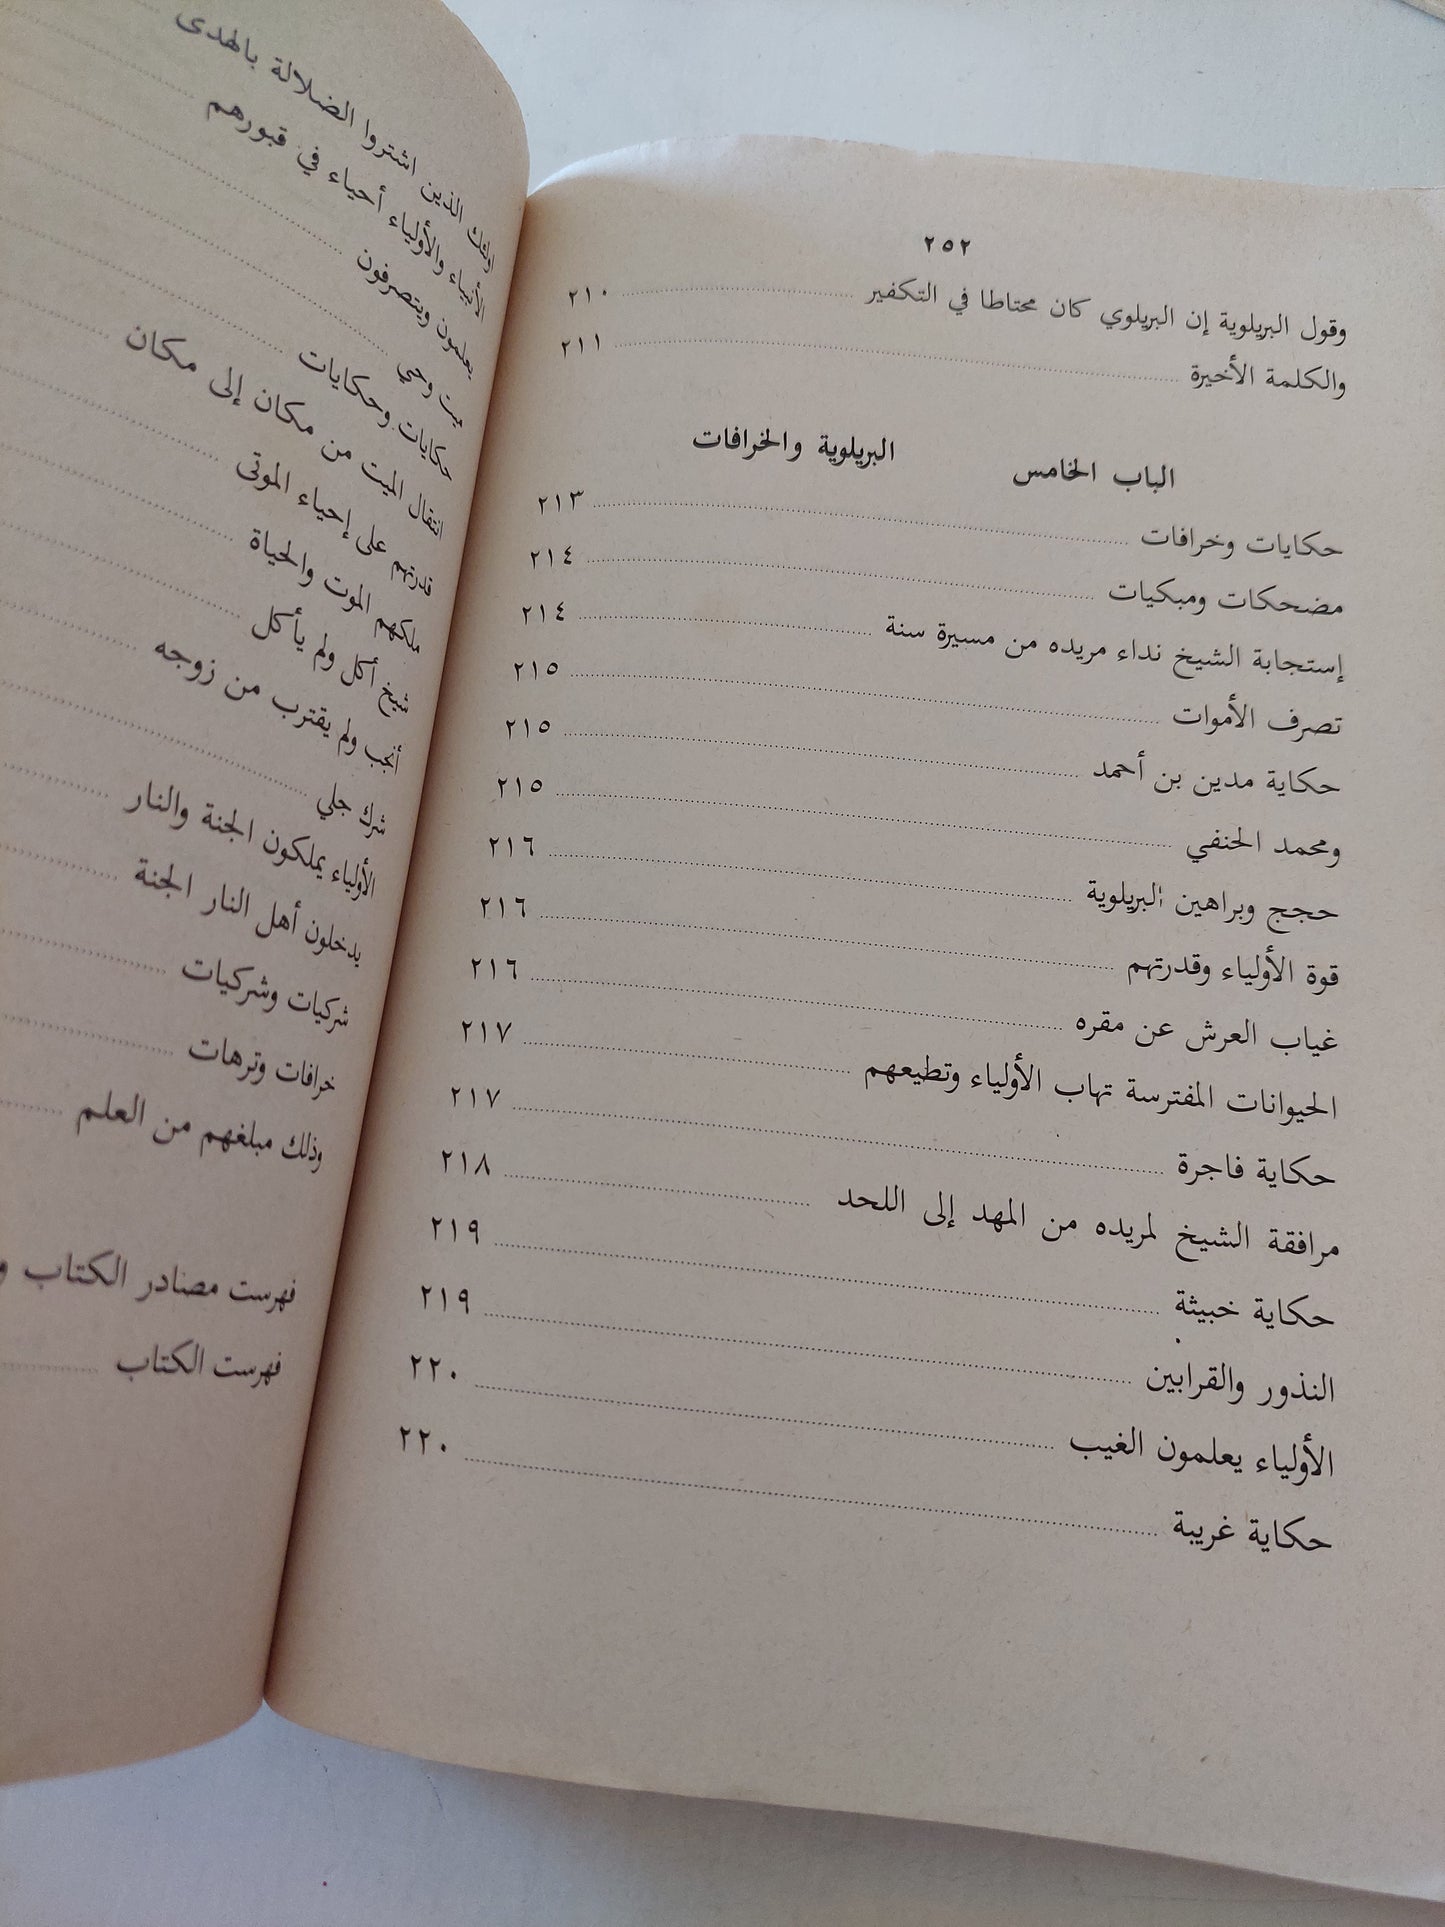 ٢٥٢
وقول البريلوية إن البريلوي كان محتاطا في التكفير ٢١٠
والكلمة الأخيرة ٢١١
الباب الخامس البريلوية والخرافات
حكايات وخرافات ٢١٣
مضحكات ومبكيات ٢١٤
إستجابة الشيخ نداء مريده من مسيرة سنة ٢١٤
تصرف الأموات ٢١٥
حكاية مدين بن أحمد ٢١٥
ومحمد الحنفي ٢١٥
حجج وبراهين البريلوية ٢١٦
قوة الأولياء وقدرتهم ٢١٦
غياب العرش عن مقره ٢١٦
الحيوانات المفترسة تهاب الأولياء وتطيعهم ٢١٧
حكاية فاجرة ٢١٧
مرافقة الشيخ لمريده من المهد إلى اللحد ٢١٨
حكاية خبيثة ٢١٩
النذور والقرابين ٢١٩
الأولياء يعلمون الغيب ٢٢٠
حكاية غريبة ٢٢٠
اولئك الذين اشتروا الضلالة بالهدى
الأنبياء والأولياء أحياء في قبورهم
يعلمون ويتصرفون
ميت وحي
حكايات وحكايات
انتقال الميت من مكان إلى مكان
قدرتهم على إحياء الموتى
ملكهم الموت والحياة
شيخ أكل ولم يأكل
أنجب ولم يقترب من زوجه
شرك جلي
الأولياء يملكون الجنة والنار
يدخلون أهل النار الجنة
شركيات وشركيات
خرافات وترهات
وذلك مبلغهم من العلم
فهرست مصادر الكتاب
فهرست الكتاب